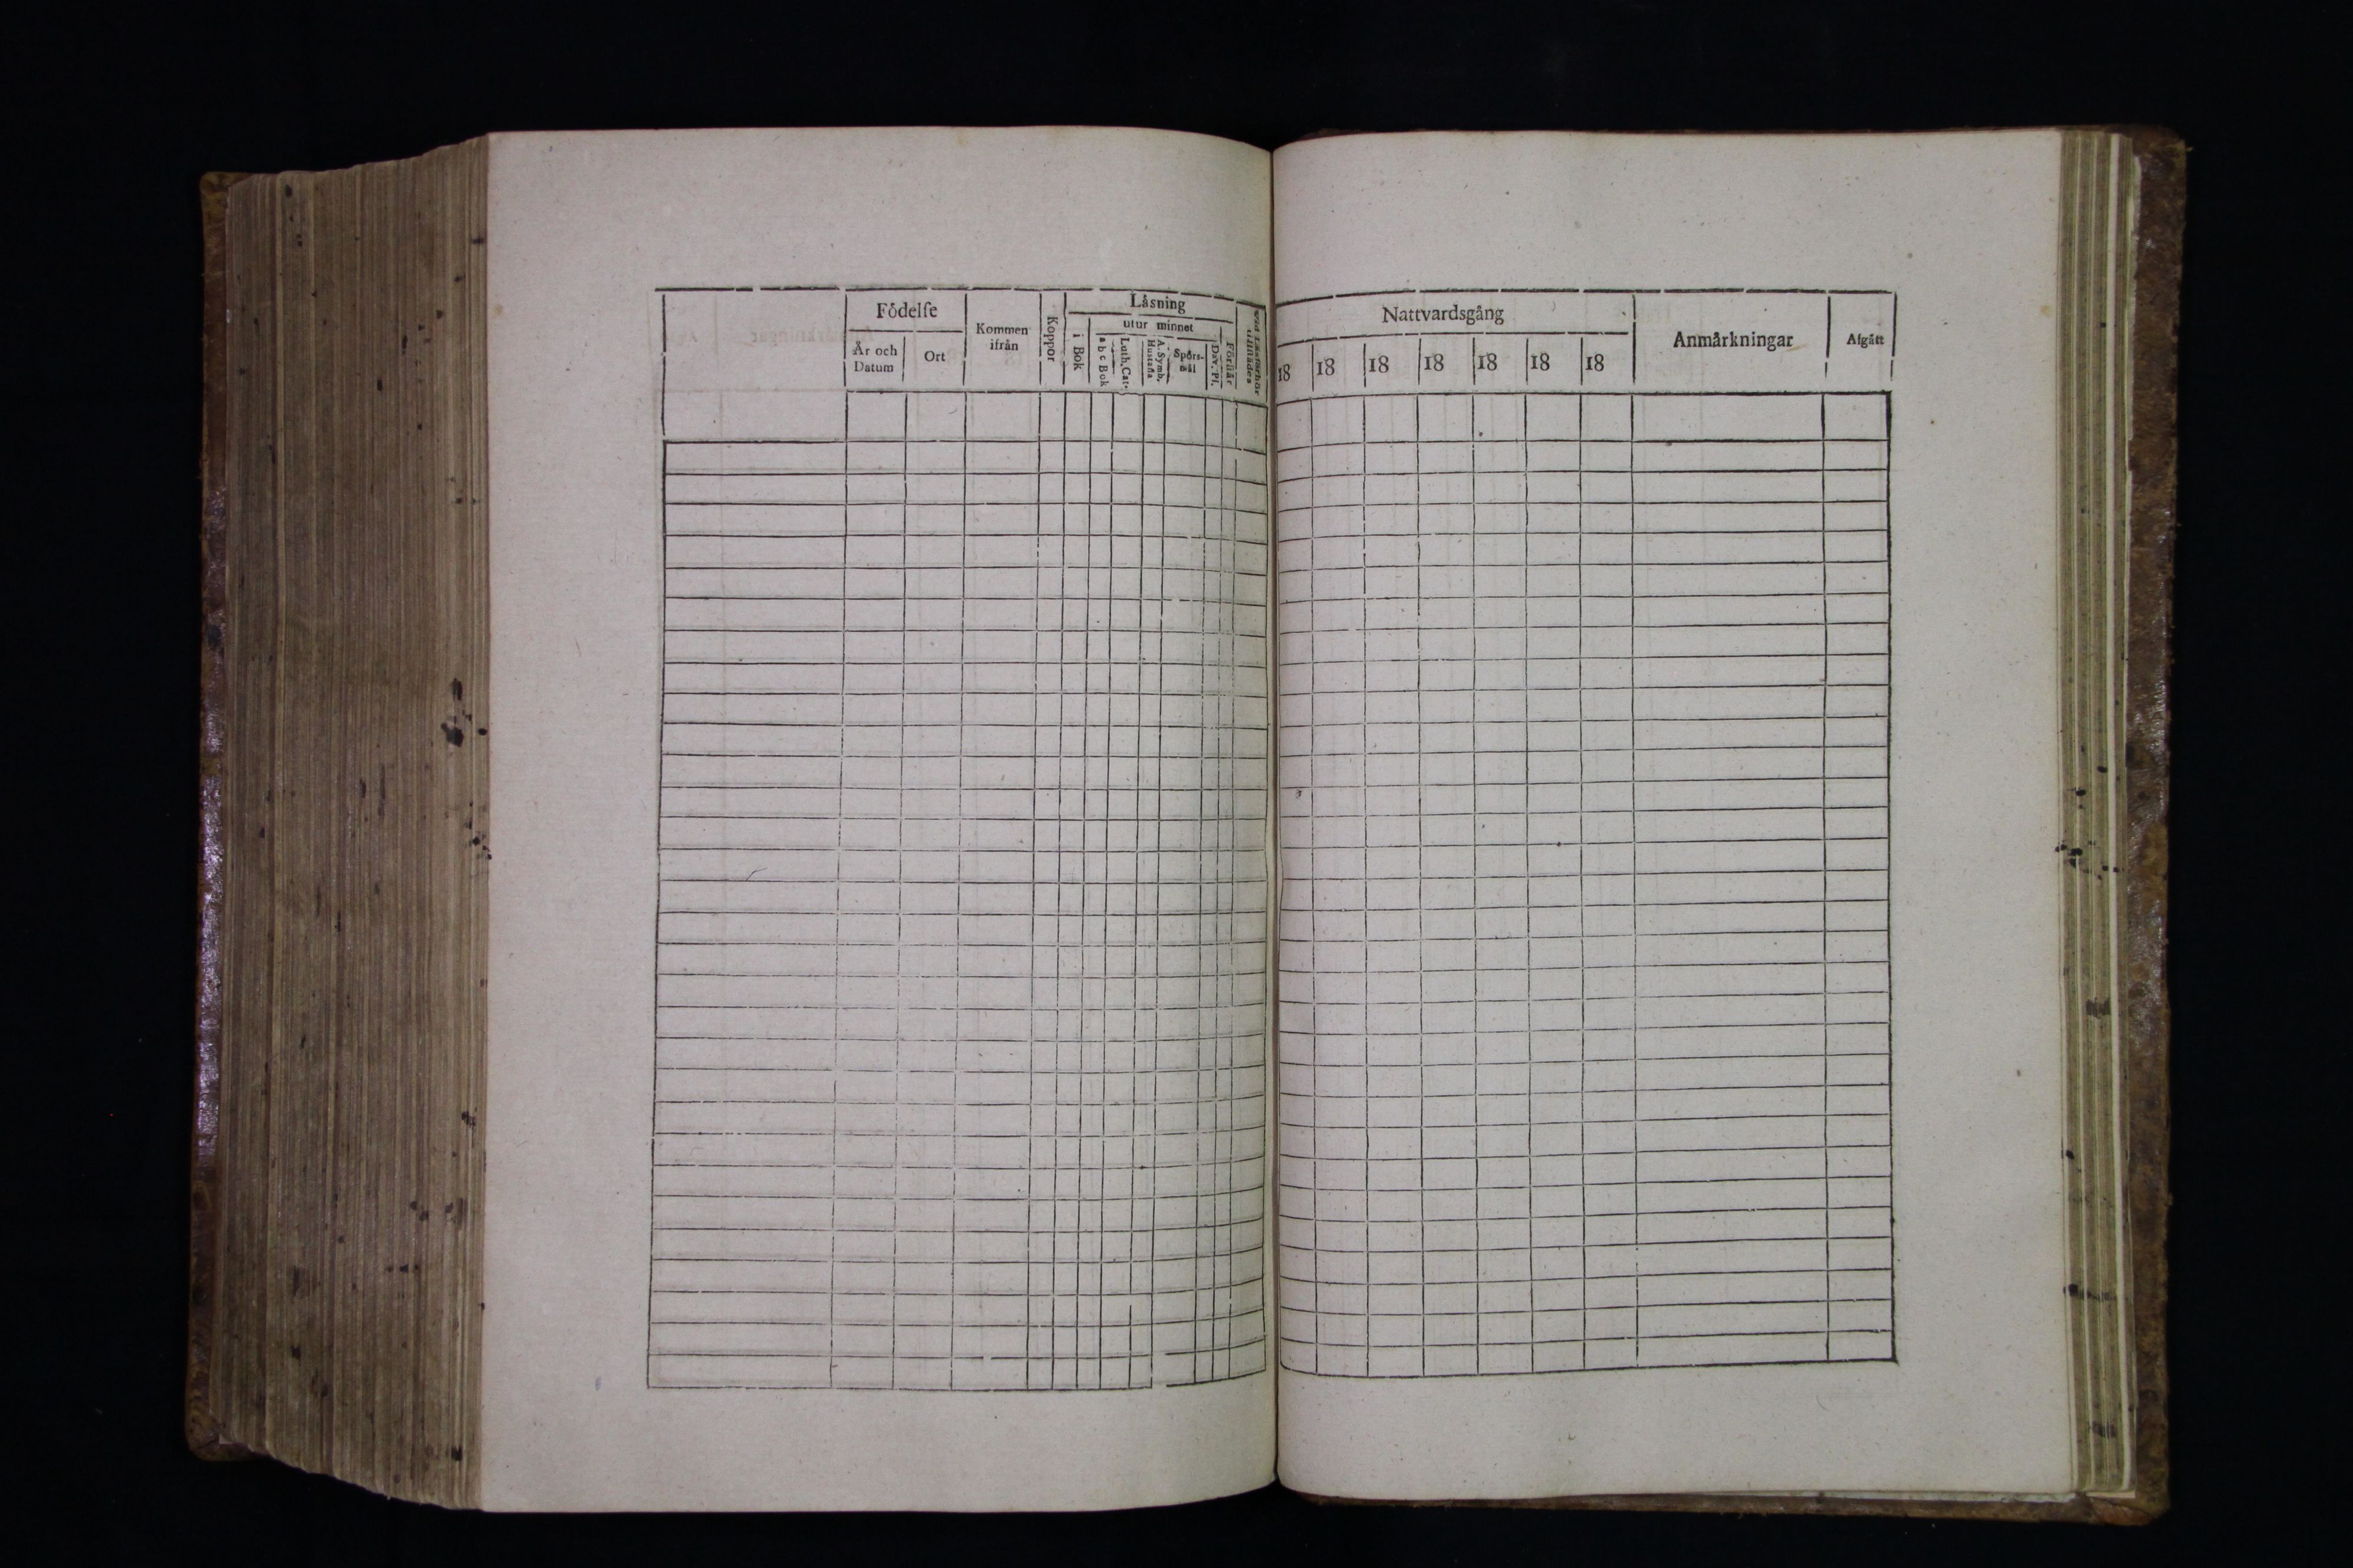 Födelſe
År och
Datum
Ort
Kommen
ifrån
Koppor
Läsning
i Bok
utur minnet
a b c Bok
Luth. Cat.
A. Symb.
Hustafla
Spörs-
mål
Dav. Ps.
Förstår
Nattvardsgång
18 18 18 18 18 18 18
Anmärkningar
Afgått